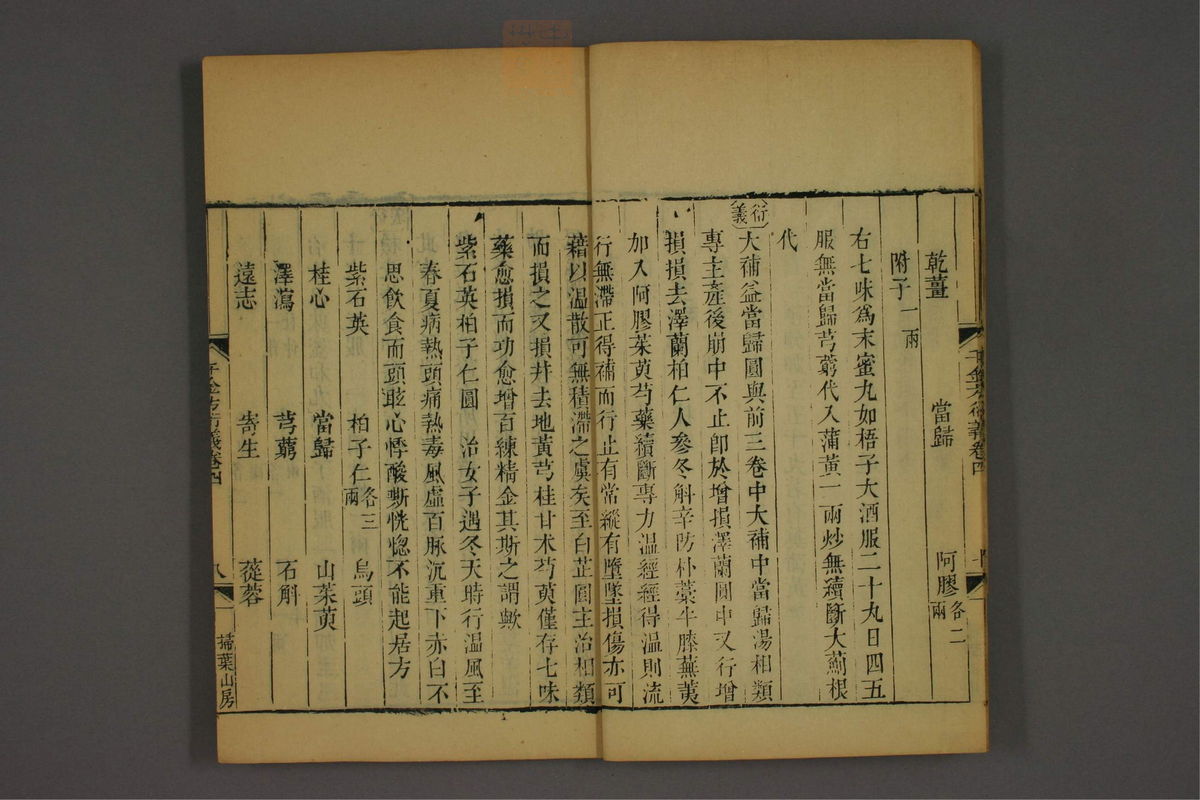 乾薑 當歸 阿膠各二兩
附子一兩
右七味爲末蜜丸如梧子大酒服二十九日四五
服無當歸芎藭代入蒲黃一兩炒無續斷大薊根
代
衍義
大補益當歸圓與前三卷中大補中當歸湯相類
專主產後崩中不止卽於增損澤蘭圓中又行增
損損去澤蘭柏仁人參冬斛辛防朴藁牛膝蕪荑
加入阿膠茱萸芍藥續斷專力溫經經得溫則流
行無滯正得補而行止有常縱有墮墜損傷亦可
藉以溫散可無積滯之虞矣至白芷圓主治相類
而損之又損幷去地黃芎桂甘朮芍萸僅存七味
藥愈損而功愈增百練精金其斯之謂歟
紫石英柏子仁圓 治女子遇冬天時行溫風至
春夏病熱頭痛熱毒風虛百脉沉重下赤白不
思飲食而頭眩心悸酸嘶恍惚不能起居方
紫石英 柏子仁各三兩 烏頭
桂心 當歸 山茱萸
澤瀉 芎藭 石斛
遠志 寄生 蓯蓉
千金方衍義卷四 八 掃葉山房